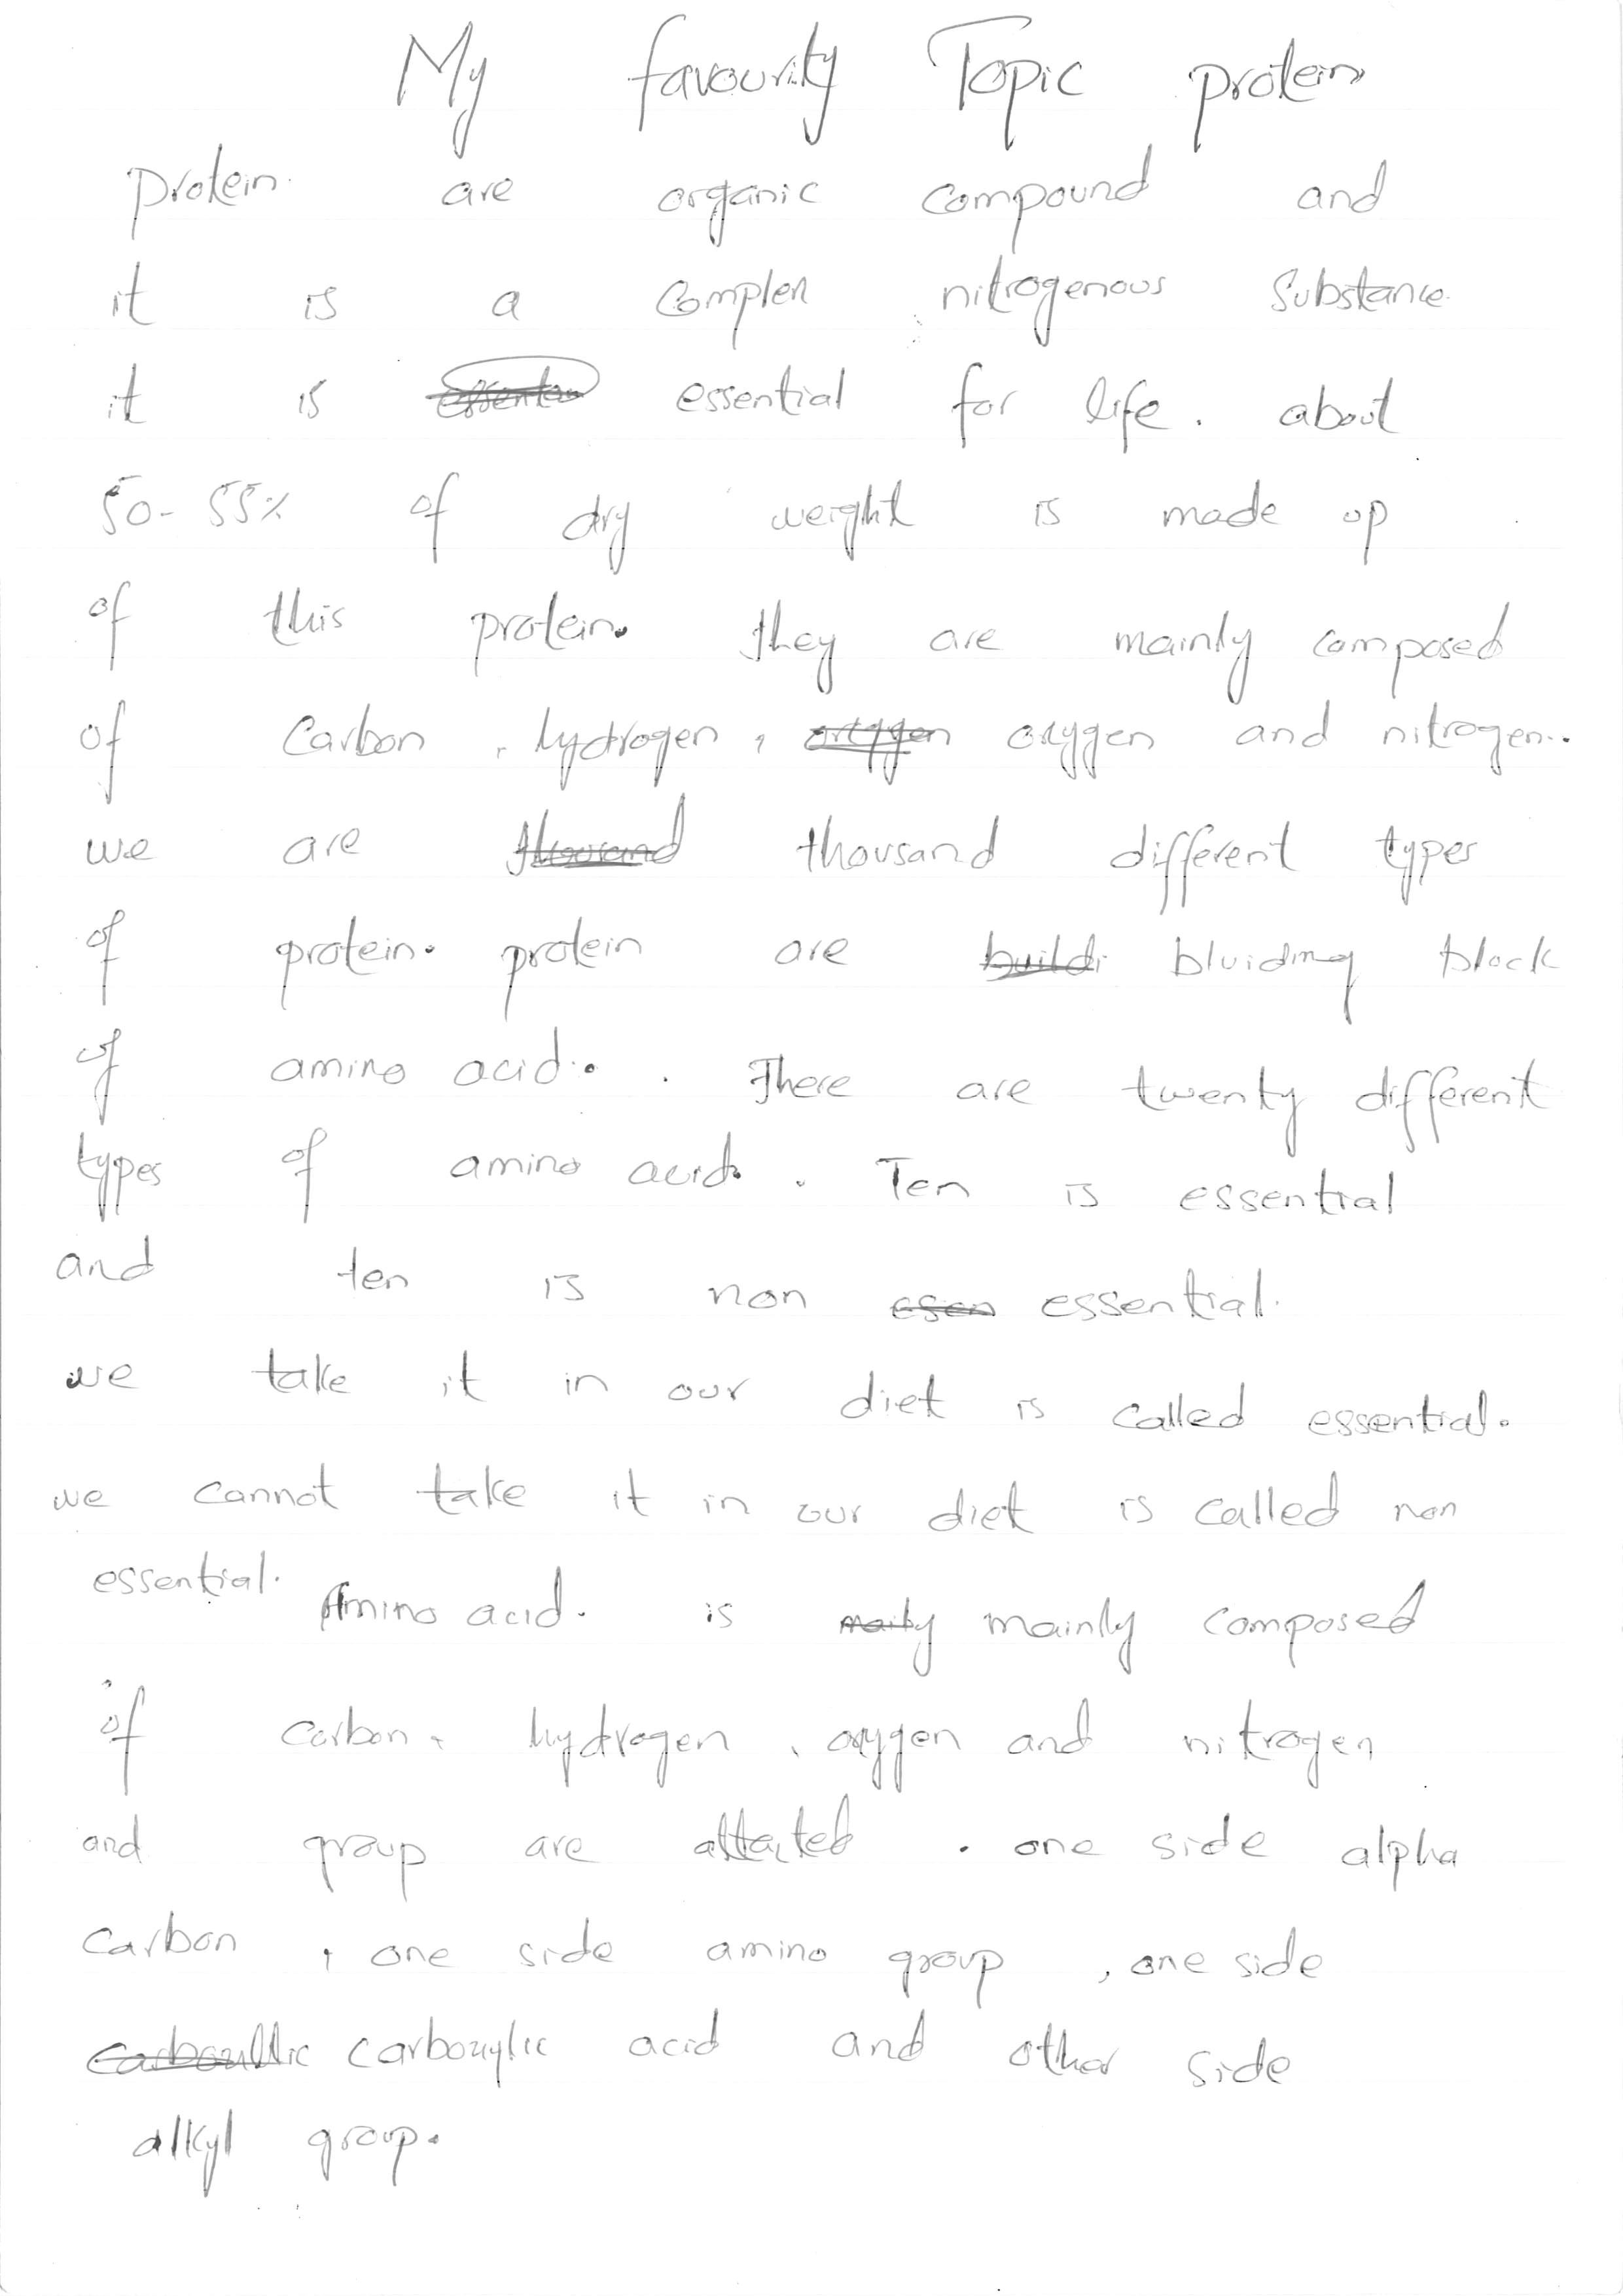 My favourity Topic protein
protein are organic compound and
it is a complex nitrogenous substance
it is essential for life. about
50-55% of dry weight is made up
of this protein. They are mainly composed
of Carbon, hydrogen, oxygen and nitrogen.
we are thousand different types
of protein. protein are bluiding block
of amino acid. There are twenty different
types of amino acid. Ten is essential
and ten is non essential.
we take it in our diet is called essential.
we cannot take it in our diet is called non
essential. Amino acid. is mainly composed
of carbon, hydrogen, oxygen and nitrogen
and group are . one side alpha
carbon, one side amino group, one side
carboxylic acid and other side
alkyl group.